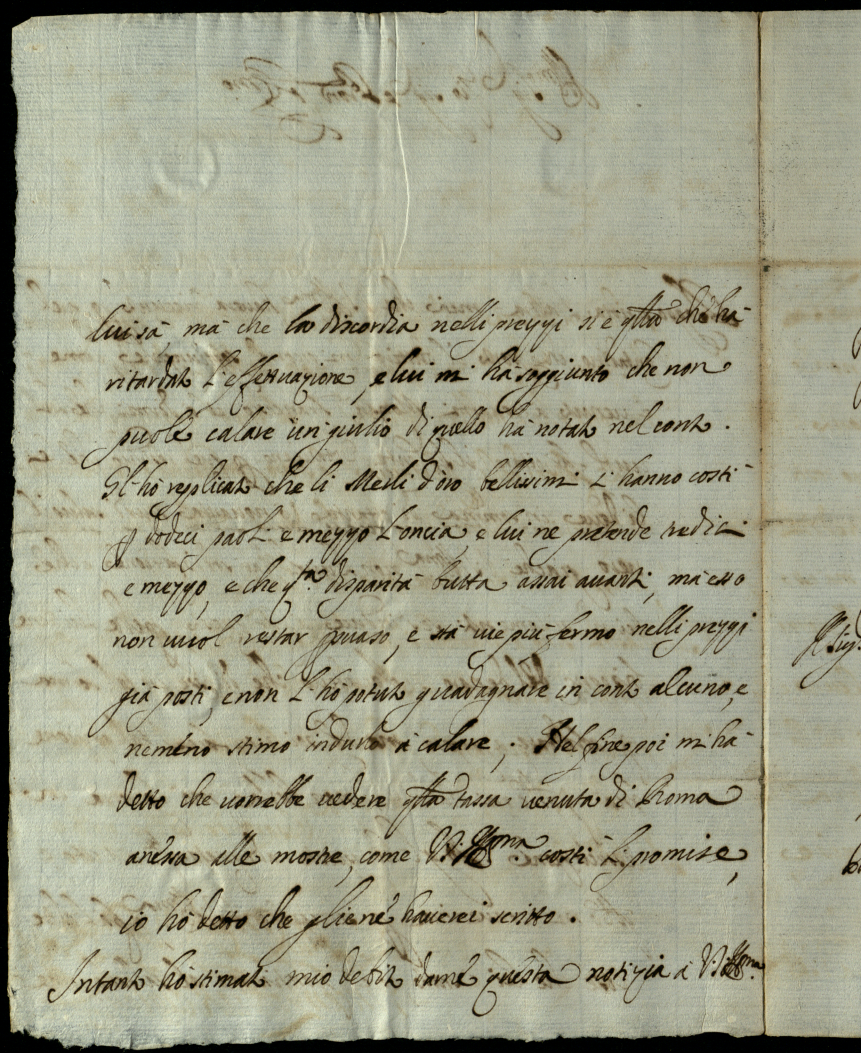 lui sà, mà che la discordia nelli prezzi si è qlla che hà
ritardato l'effettuazione, e lui mi hà soggiunto che non
puole calare un giulio di quello hà notato nel conto.
Gl'hò replicato che li Merli d'oro bellissimi l'hanno costì
dodeci paoli e mezzo l'oncia, e lui ne pretende tredici
e mezzo, e che qta disparità butta assai avanti, mà esso
non vuol restar psuaso, e stà vie più fermo nelli prezzi
già posti, e non l'hò potuto guadagnare in conto alcuno, e
nemeno stimo indurlo à calare; Nel fine poi mi hà
detto che vorrebbe vedere qlla tassa venuta di Roma
anessa alle mostre, come V.S. Illma costì li promise,
io hò detto che gliene haverei scritto.
Intanto hò stimato mio debito darne questa notizia à V.S. Illma.